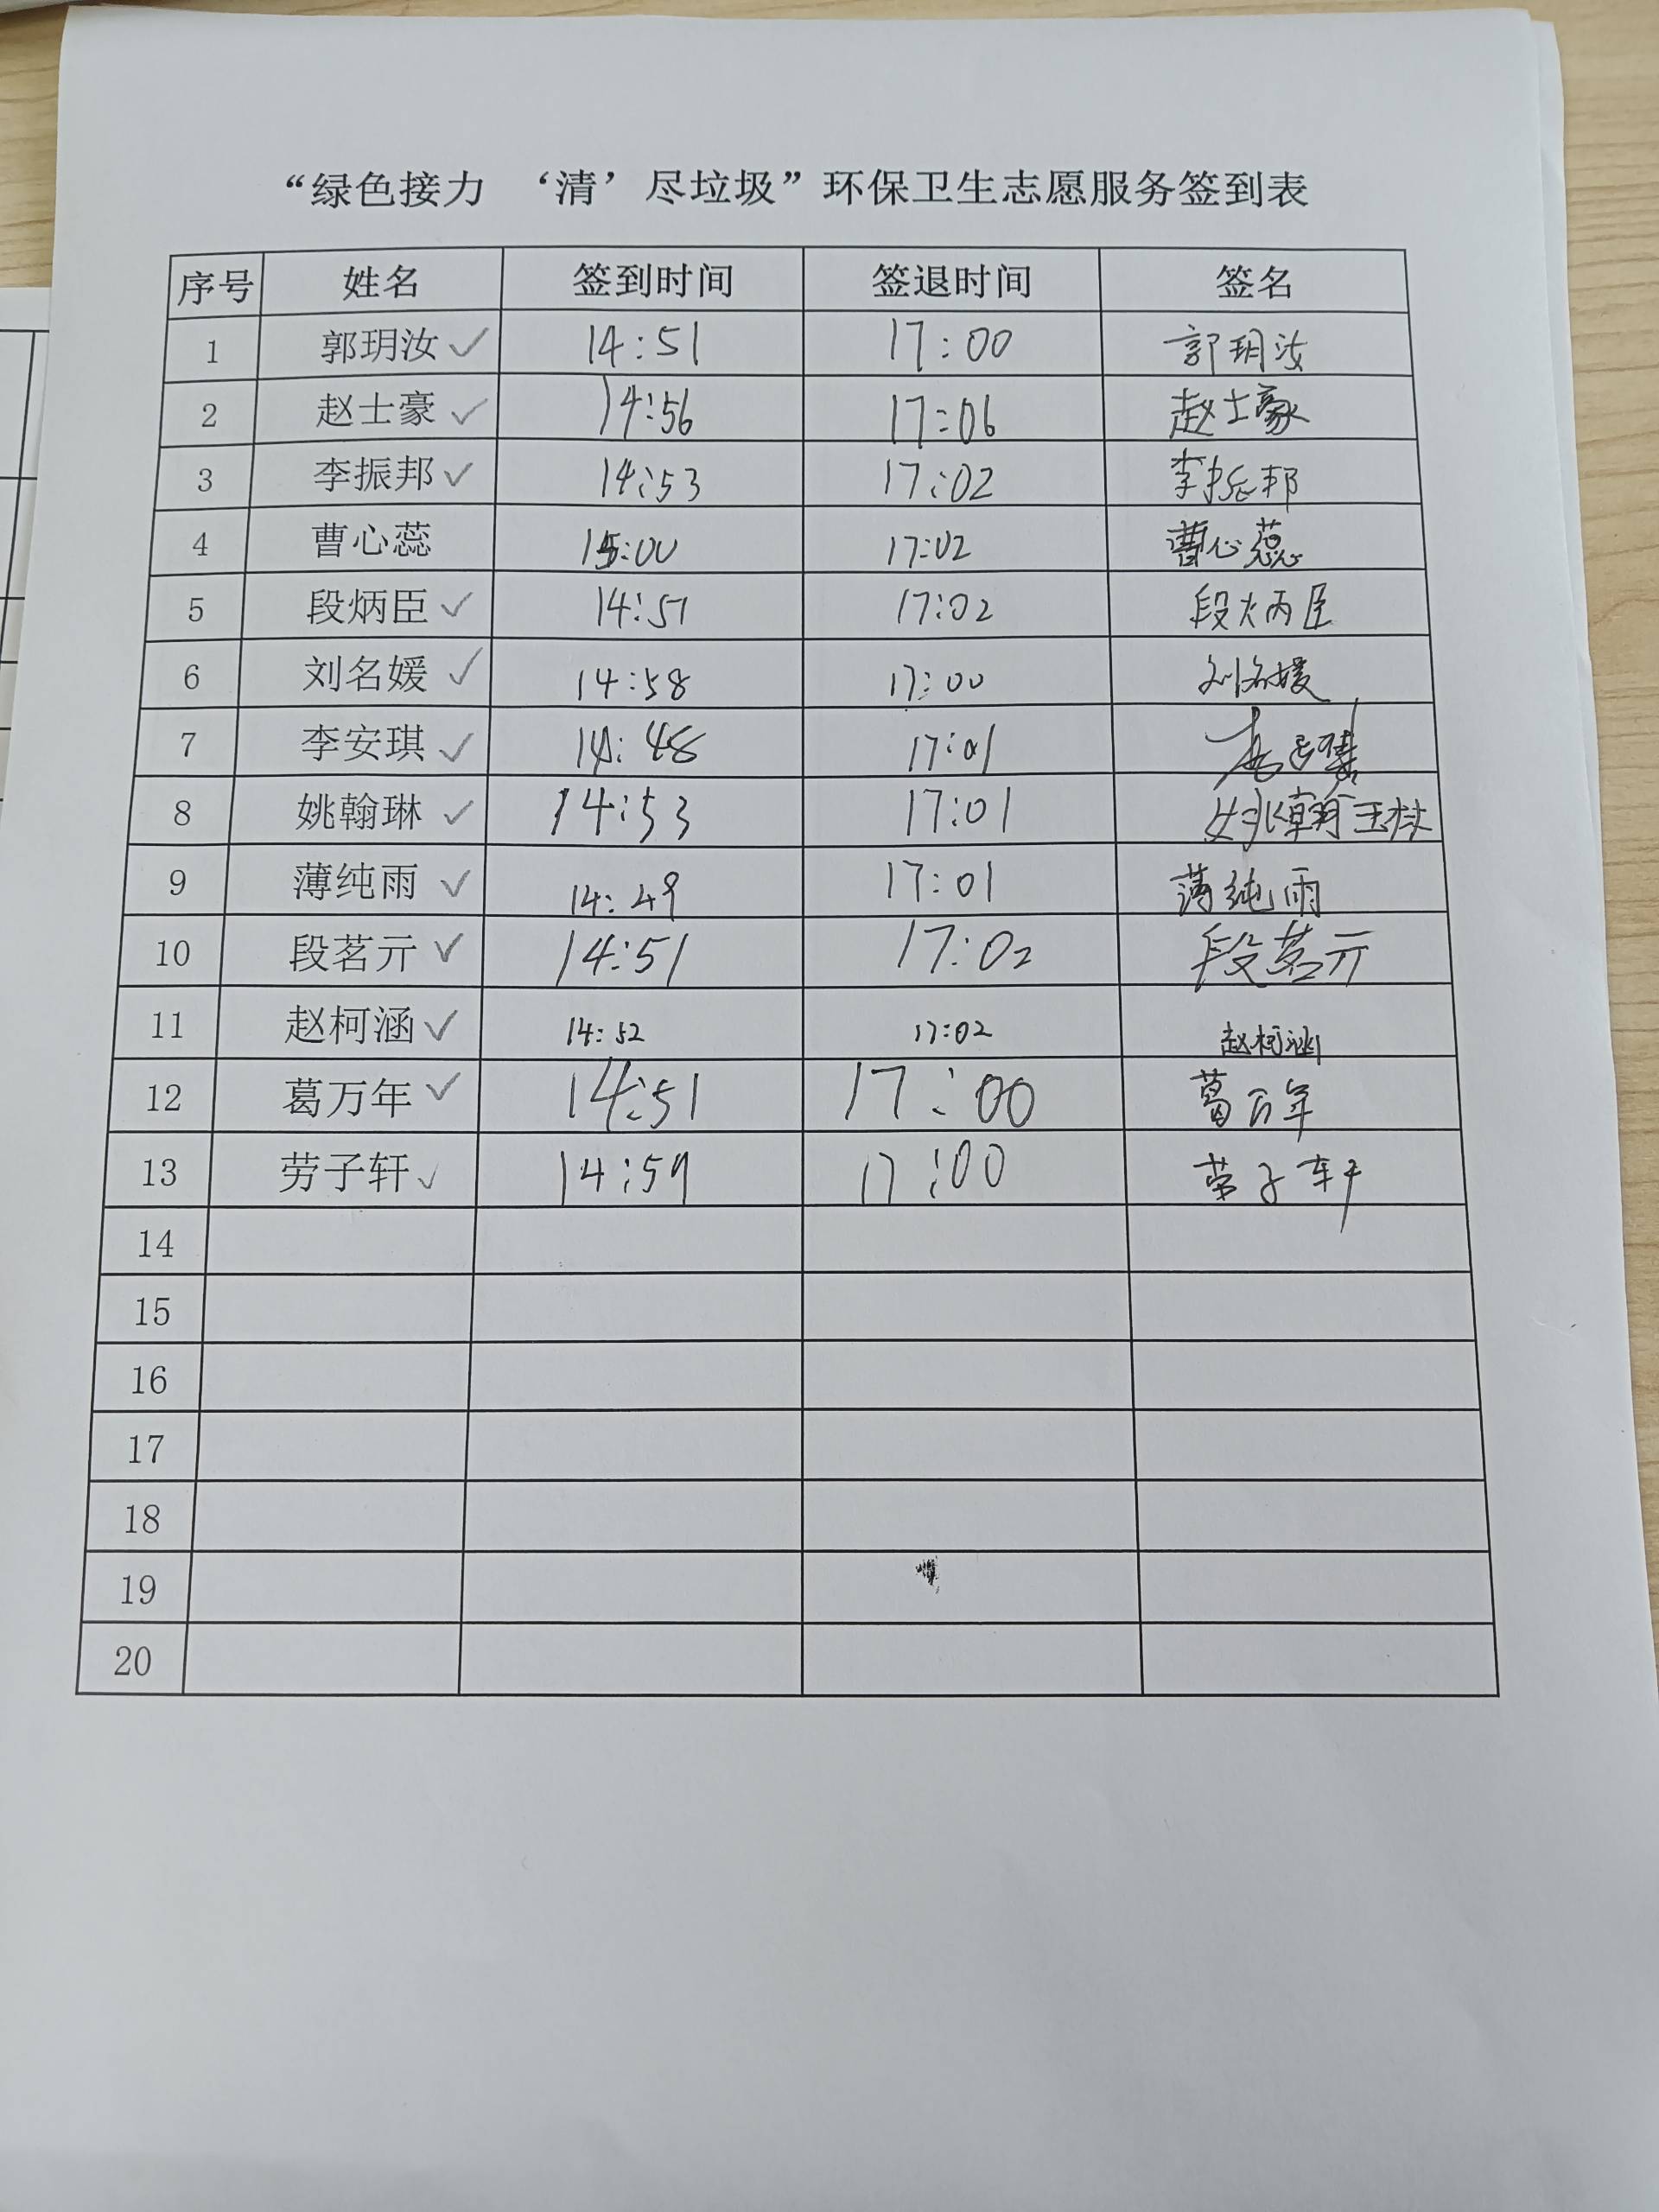 “绿色接力 ‘清’尽垃圾”环保卫生志愿服务签到表
序号 姓名 签到时间 签退时间 签名
1 郭玥汝 ✓ 14:51 17:00 郭玥汝
2 赵士豪 ✓ 14:56 17:06 赵士豪
3 李振邦 ✓ 14:53 17:02 李振邦
4 曹心蕊 15:00 17:02 曹心蕊
5 段炳臣 ✓ 14:57 17:02 段炳臣
6 刘名媛 ✓ 14:58 17:00 刘名媛
7 李安琪 ✓ 14:48 17:01 李安琪
8 姚翰琳 ✓ 14:53 17:01 姚翰琳
9 薄纯雨 ✓ 14:49 17:01 薄纯雨
10 段茗亓 ✓ 14:51 17:02 段茗亓
11 赵柯涵 ✓ 14:52 17:02 赵柯涵
12 葛万年 ✓ 14:51 17:00 葛万年
13 劳子轩 ✓ 14:59 17:00 劳子轩
14
15
16
17
18
19
20